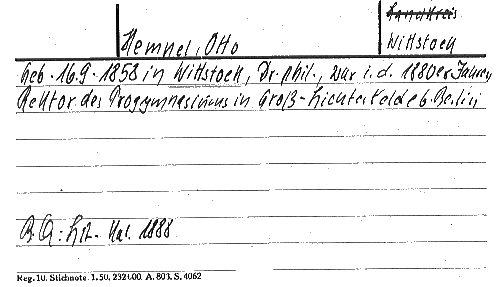 Landkreis
Hempel, Otto
Wittstock
Geb. 16.9.1858 in Wittstock, Dr. phil., war i. d. 1880er Jahren
Rektor des Progymnasiums in Groß-Lichterfelde b. Berlin
Kal. 1888
Reg. 10. Stichnote. 1.50. 232000. A. 803. S. 4062